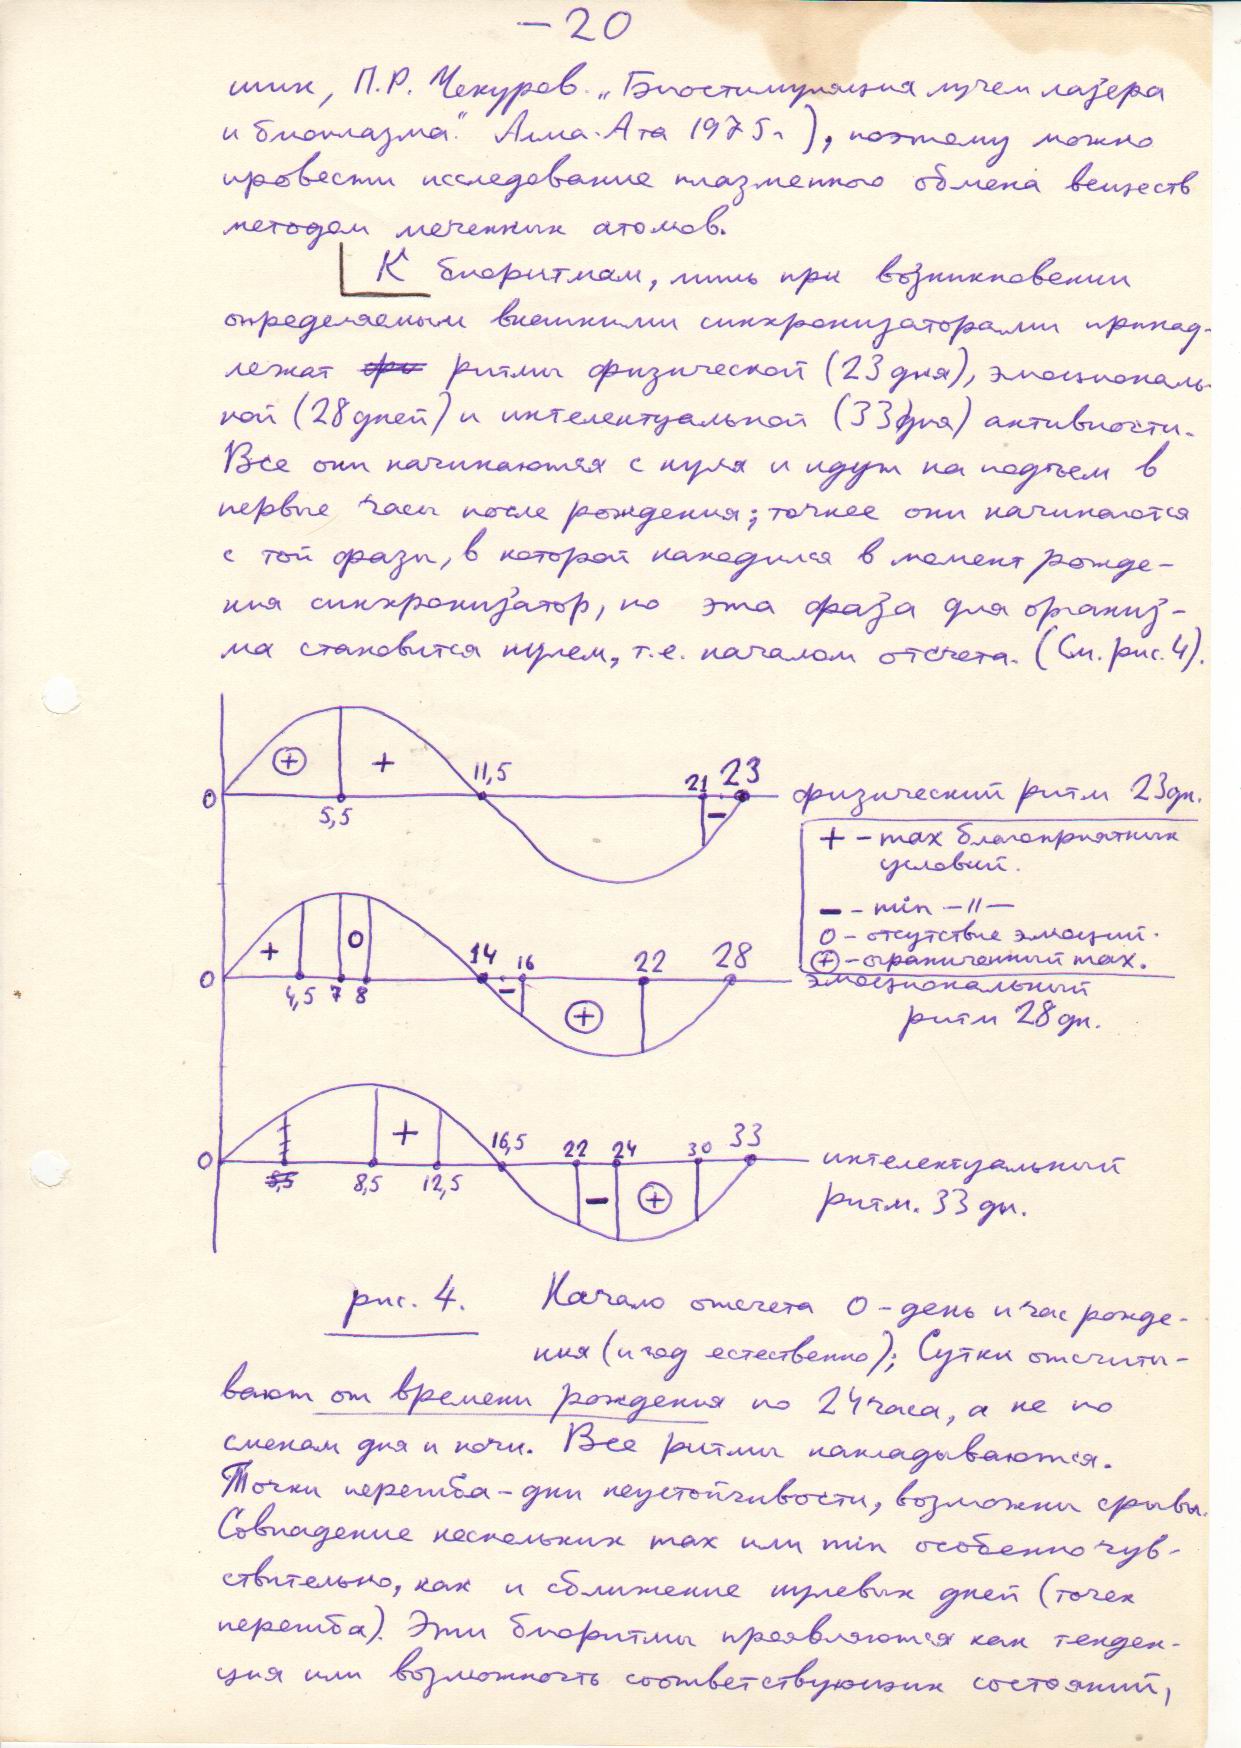 – 20
шик, П.Р. Чекуров. „Биостимуляция лучем лазера
и биоплазма." Алма-Ата 1975 г), поэтому можно
провести исследование плазменного обмена веществ
методом меченных атомов.
К биоритмам, лишь при возникновении
определяемым внешними синхронизаторами принад-
лежат ритмы физической (23 дня), эмоциональ-
ной (28 дней) и интелектуальной (33 дня) активности.
Все они начинаются с нуля и идут на подъем в
первые часы после рождения; точнее они начинаются
с той фазы, в которой находился в момент рожде-
ния синхронизатор, но эта фаза для организ-
ма становится нулем, т.е. началом отсчета. (См. рис. 4).
+ + 11,5 21 23
0 5,5 – физический ритм 23 дн.
+ – max благоприятных
условий.
– – min –〃–
0 – отсутствие эмоций.
⊕ – ограниченный max.
+ 0 14 16 22 28
0 4,5 7 8 – + эмоциональный
ритм 28 дн.
+ 16,5 22 24 30 33
0 5,5 8,5 12,5 – + интелектуальный
ритм. 33 дн.
рис. 4. Начало отсчета 0 – день и час рожде-
ния (и год естественно); Сутки отсчиты-
вают от времени рождения по 24 часа, а не по
сменам дня и ночи. Все ритмы накладываются.
Точки перегиба – дни неустойчивости, возможны срывы.
Совпадение нескольких max или min особенно чув-
ствительно, как и сближение нулевых дней (точек
перегиба). Эти биоритмы проявляются как тенден-
ция или возможность соответствующих состояний,